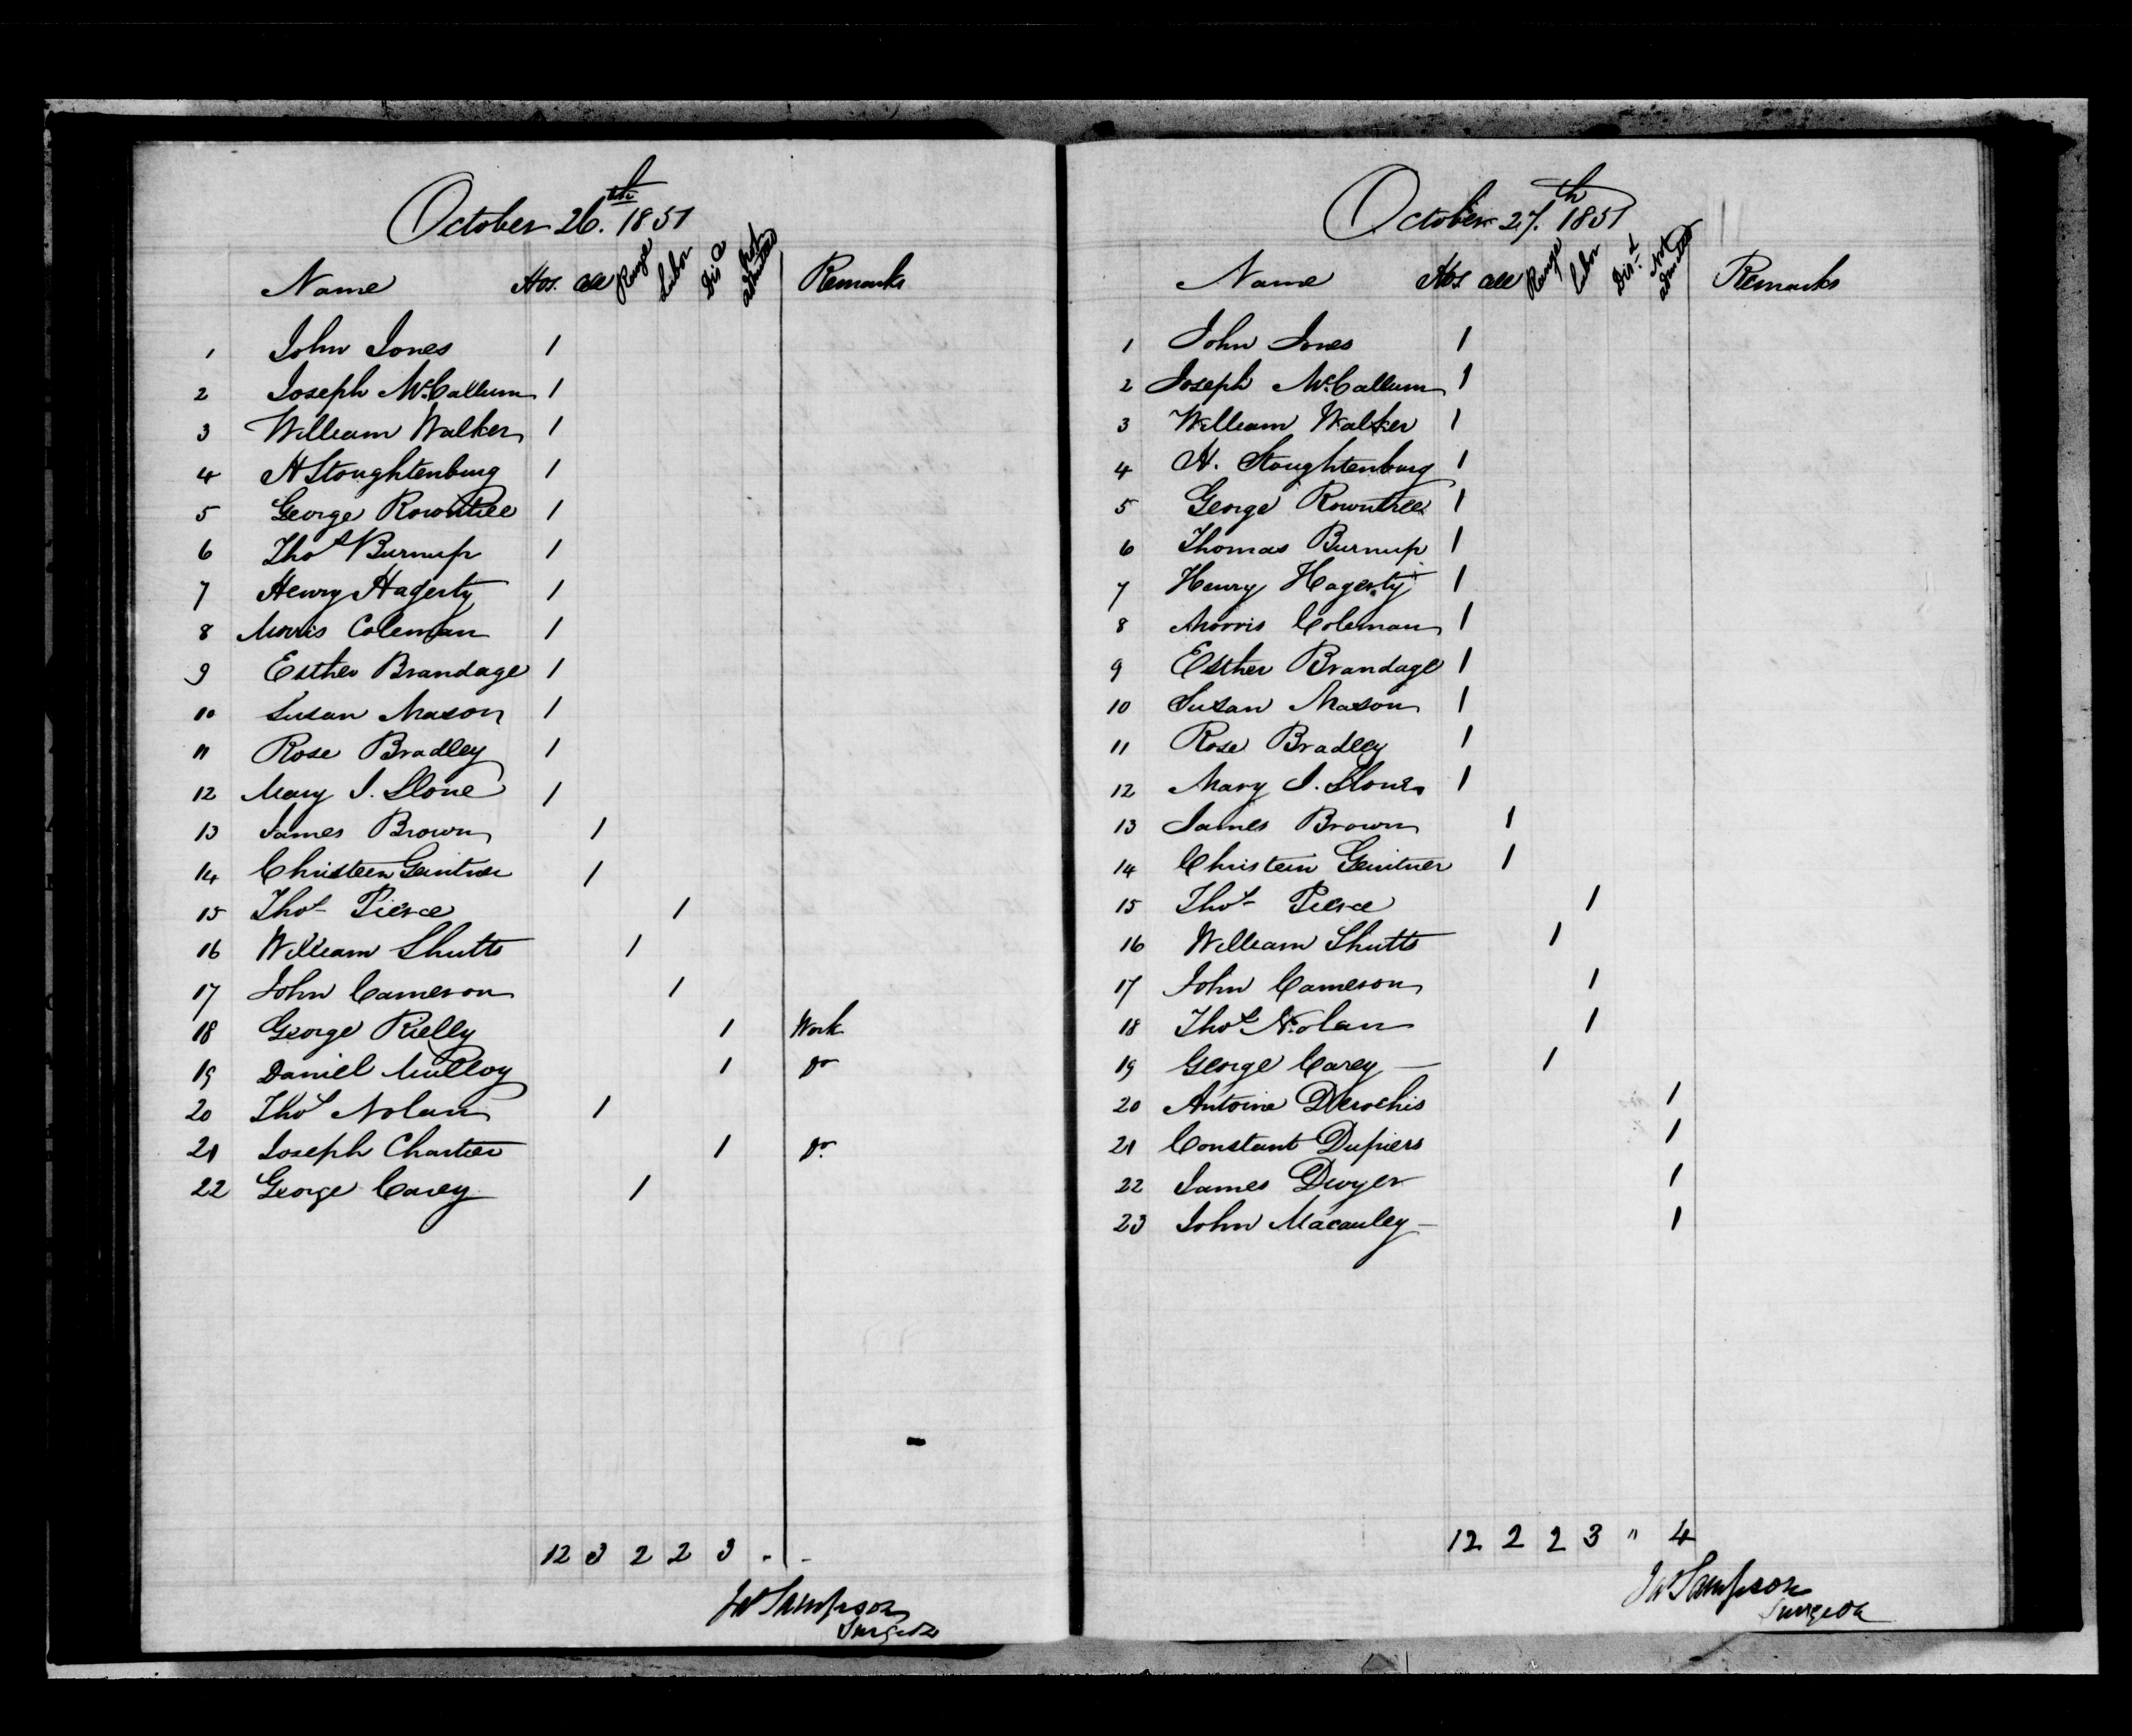 October 26th. 1851
Name Hos. Cell Range Labor Disd Not admitted Remarks
1 John Jones 1
2 Joseph McCallum 1
3 William Walker 1
4 H Stoughtenburg 1
5 George Rowntree 1
6 Thos Burnup 1
7 Henry Hagerty 1
8 Morris Coleman 1
9 Esther Brandage 1
10 Susan Mason 1
11 Rose Bradley 1
12 Mary J. Slone 1
13 James Brown 1
14 Christeen Geintner 1
15 Thos Pierce 1
16 William Shutts 1
17 John Cameron 1
18 George Rielly 1 Work
19 Daniel Mulloy 1 Do
20 Thos Nolan 1
21 Joseph Chartier 1 Do.
22 George Carey 1
12 3 2 2 3 . -
Jas Sampson
Surgeon
October 27th. 1851
Name Hos Cell Range Labor Disd Not admitted Remarks
1 John Jones 1
2 Joseph McCallum 1
3 William Walker 1
4 H. Stoughtenburg 1
5 George Rowntree 1
6 Thomas Burnup 1
7 Henry Hagerty 1
8 Morris Coleman 1
9 Esther Brandage 1
10 Susan Mason 1
11 Rose Bradley 1
12 Mary J. Slone 1
13 James Brown 1
14 Christein Geintner 1
15 Thos Pierce 1
16 William Shutts 1
17 John Cameron 1
18 Thos Nolan 1
19 George Carey — 1
20 Antoine Derochis 1
21 Constant Dupiers 1
22 James Dwyer 1
23 John Macauley — 1
12 2 2 3 " 4
Jas Sampson
Surgeon